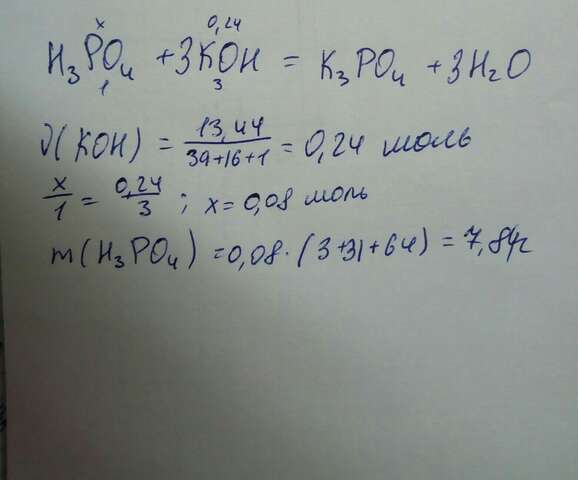 x 0,24
H₃PO₄ + 3KOH = K₃PO₄ + 3H₂O
1 3
ν(KOH) = 13,44/39+16+1 = 0,24 моль
x/1 = 0,24/3 ; x = 0,08 моль
m(H₃PO₄) = 0,08·(3+31+64) = 7,84г